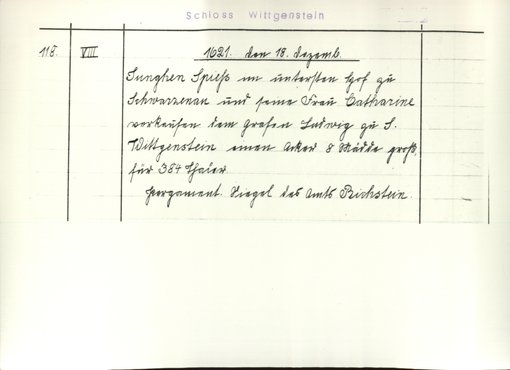 Schloss Wittgenstein
118. VIII 1621. den 18. Dezemb.
Junghen Spieß im untersten Hof zu
Schwarzenau und seine Frau Catharine
verkaufen dem Grafen Ludwig zu S.
Wittgenstein einen Acker 8 Mädde groß,
für 384 Thaler
Pergament. Siegel des Amts Richstein.